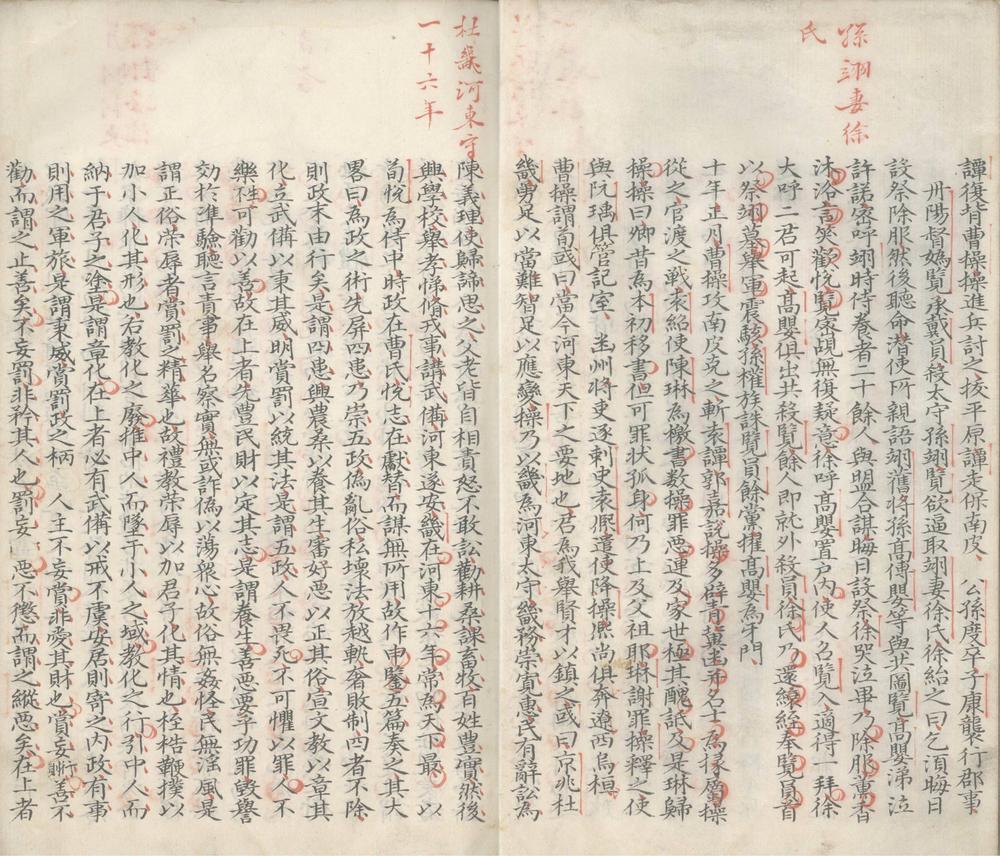 孫翊妻徐
氏
譚復背曹操操進兵討之拔平原譚走保南皮、 公孫度卒子康襲行郡事
丹陽督媯覽承戴員殺太守孫翊覽欲逼取翊妻徐氏徐紿之曰乞須晦日
設祭除服然後聽命潛使所親語翊舊將孫高傅嬰等與共圖覽高嬰涕泣
許諾密呼翊時侍養者二十餘人與盟合謀晦日設祭徐哭泣畢乃除服薰香
沐浴言笑歡悅覽密覘無復疑意徐呼高嬰置戶內使人名覽入適得一拜徐
大呼二君可起高嬰俱出共殺覽餘人即就外殺員徐氏乃還縗絰奉覽員首
以祭翊墓舉軍震駭孫權族誅覽員餘黨擢高嬰為牙門、
十年正月曹操攻南皮克之斬袁譚郭嘉說操多辟青冀幽并名士為掾屬操
從之官渡之戰袁紹使陳琳為檄書數操罪惡連及家世極其醜詆及是琳歸
操操曰卿昔為本初移書但可罪狀孤身何乃上及父祖耶琳謝罪操釋之使
與阮瑀俱管記室、幽州將吏逐刺史袁熙遣使降操熙尚俱奔遼西烏桓
曹操謂荀彧曰當今河東天下之要地也君為我舉賢才以鎮之彧曰京兆杜
畿勇足以當難智足以應變操乃以畿為河東太守畿務崇寬惠民有辭訟為
杜畿河東守
一十六年
陳義理使歸諦思之父老皆自相責怒不敢訟勸耕桑課畜牧百姓豊實然後
興學校舉孝悌脩戎事講武備河東遂安畿在河東十六年常為天下最 以
荀悅為侍中時政在曹氏悅志在獻替而謀無所用故作申鑒五篇奏之其大
畧曰為政之術先屏四患乃崇五政偽亂俗私壞法放越軌奢敗制四者不除
則政末由行矣是謂四患興農桑以養其生審好惡以正其俗宣文教以章其
化立武備以秉其威明賞罰以統其法是謂五政人不畏死不可懼以罪人不
樂生可勸以善故在上者先豊民財以定其志是謂養生善惡要乎功罪毀譽
効於準驗聽言責事舉名察實無或詐偽以蕩眾心故俗無姦怪民無淫風是
謂正俗榮辱者賞罰之精華也故禮教榮辱以加君子化其情也桎梏鞭撲以
加小人化其形也若教化之廢推中人而墜于小人之域教化之行引中人而
納于君子之塗是謂章化在上者必有武備以戒不虞安居則寄之內政有事
則用之軍旅是謂秉威賞罰政之柄 人主不妄賞非愛其財也賞妄行則善不
勸而謂之止善矣不妄罰非矜其人也罰妄 惡不懲而謂之縱惡矣在上者